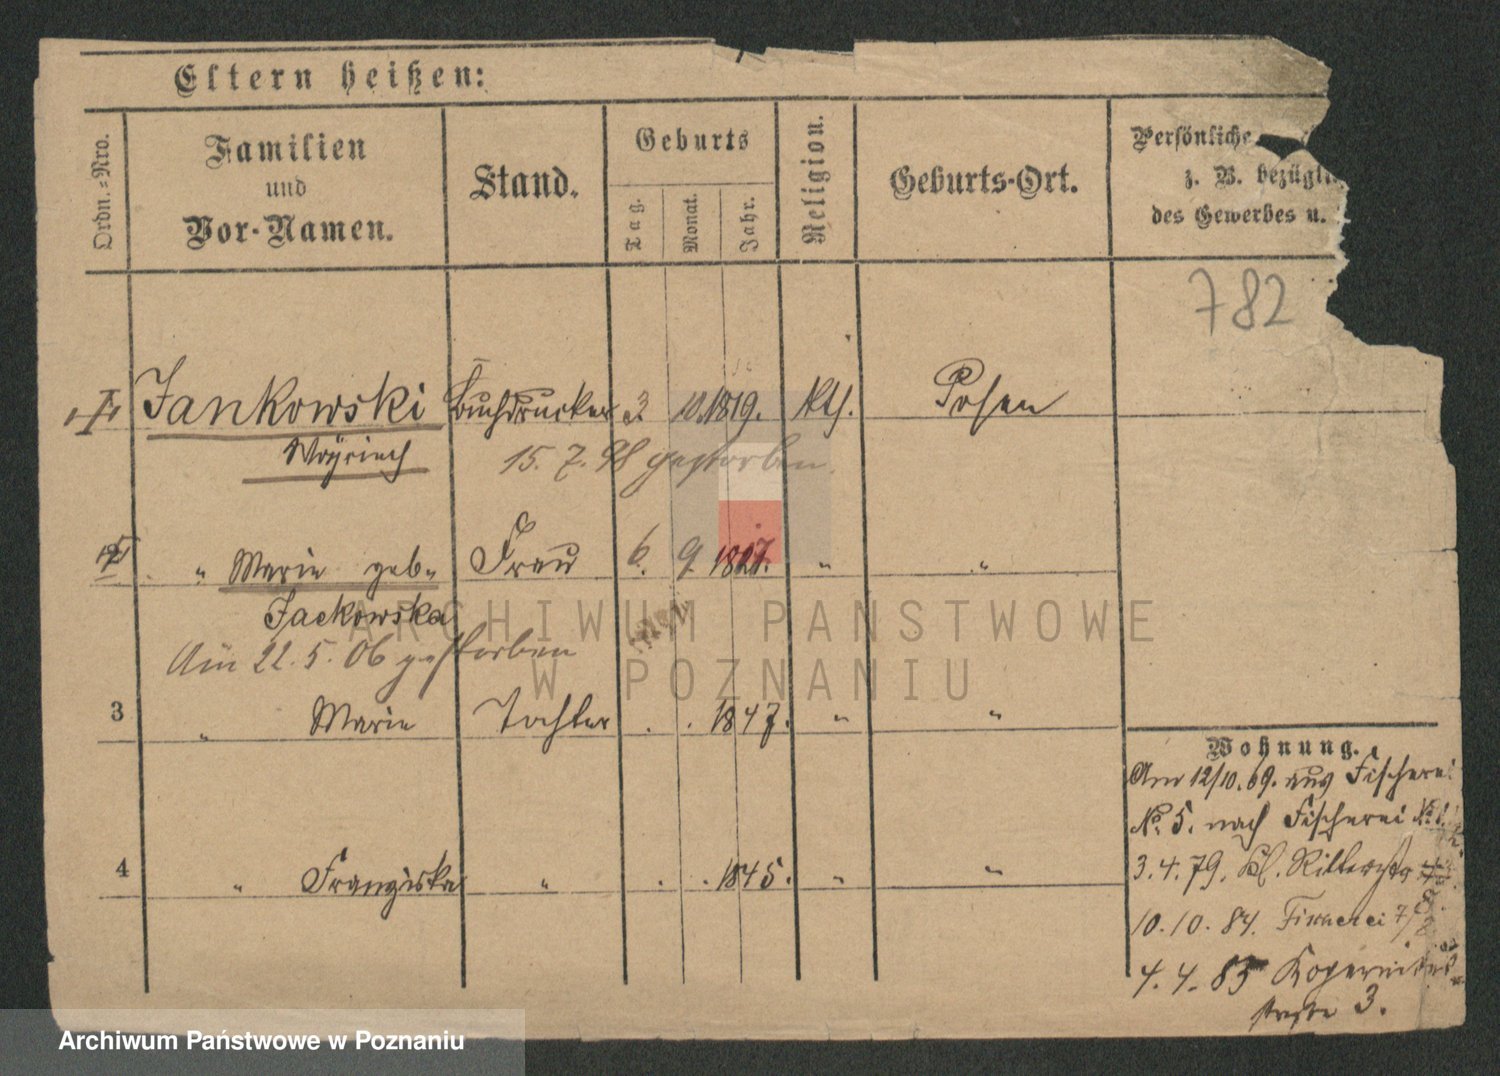 Eltern heißen:
Ordn.-Nro.
Familien
und
Vor-Namen.
Stand.
Geburts
Tag.
Monat.
Jahr.
Religion.
Geburts-Ort.
Persönliche
z. B. bezügli
des Gewerbes u.
782
1 Jankowski Buchdrucker 3 10. 1819. kth. Posen
15. 7. 98 gestorben.
2 " Marie geb. Frau 6. 9. 1827. " "
Jackowska
Am 22. 5. 06 gestorben
3 " Marie Tochter . . 1847. " "
4 " Franziska " . . 1845. " "
Wohnung.
Am 12/10. 69. aus Fischerei
No. 5. nach Fischerei No.
3. 4. 79. Kl. Ritterstr
10. 10. 84. Fischerei 7/8
4. 4. 85 Kopernikus
straße 3.
ARCHIWUM PAŃSTWOWE
W POZNANIU
Archiwum Państwowe w Poznaniu